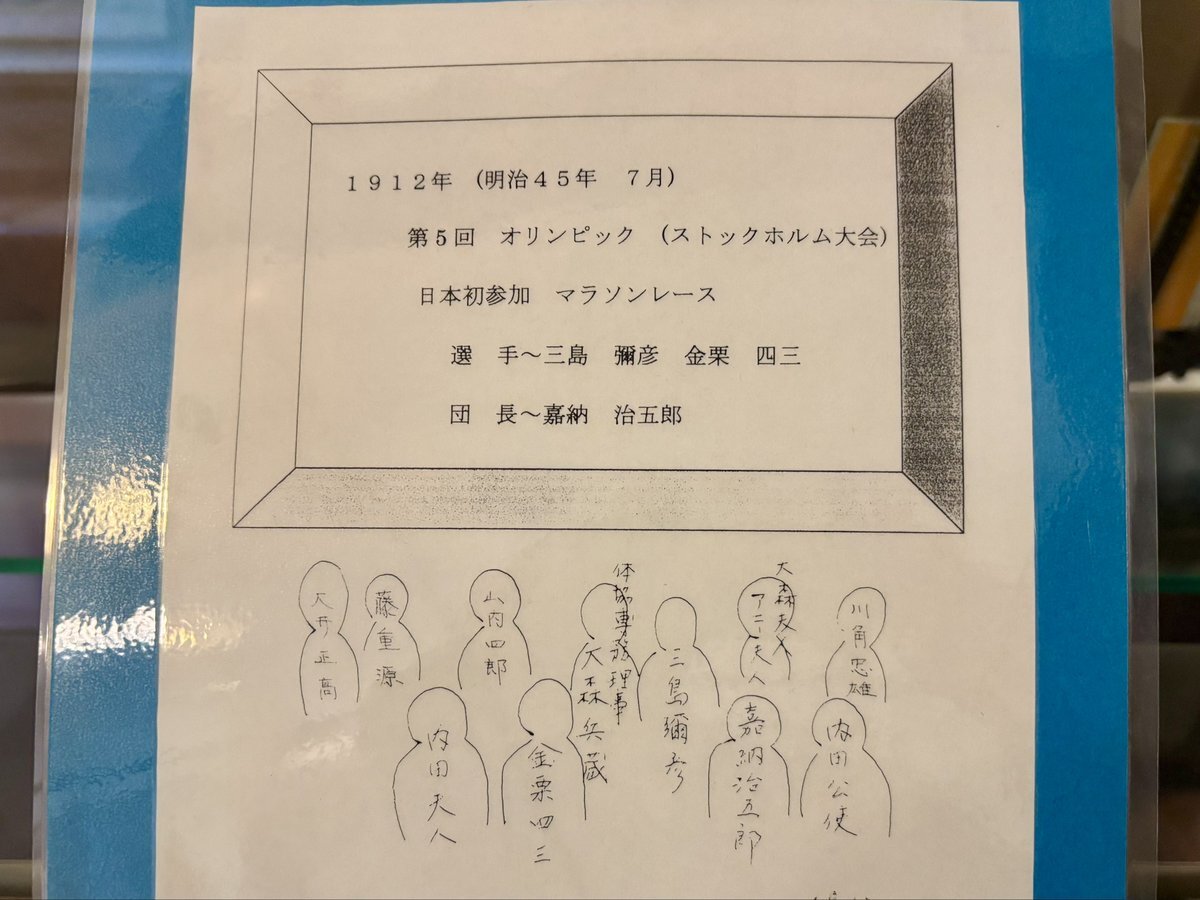 1912年　(明治45年　7月)
第5回　オリンピック　(ストックホルム大会)
日本初参加　マラソンレース
選　手～三島　彌彦　金栗　四三
団　長～嘉納　治五郎
大井正高
藤重源
山内四郎
体協専務理事
大森兵蔵
三島彌彦
大森夫人
アニー夫人
川角忠雄
内田夫人
金栗四三
嘉納治五郎
内田公使